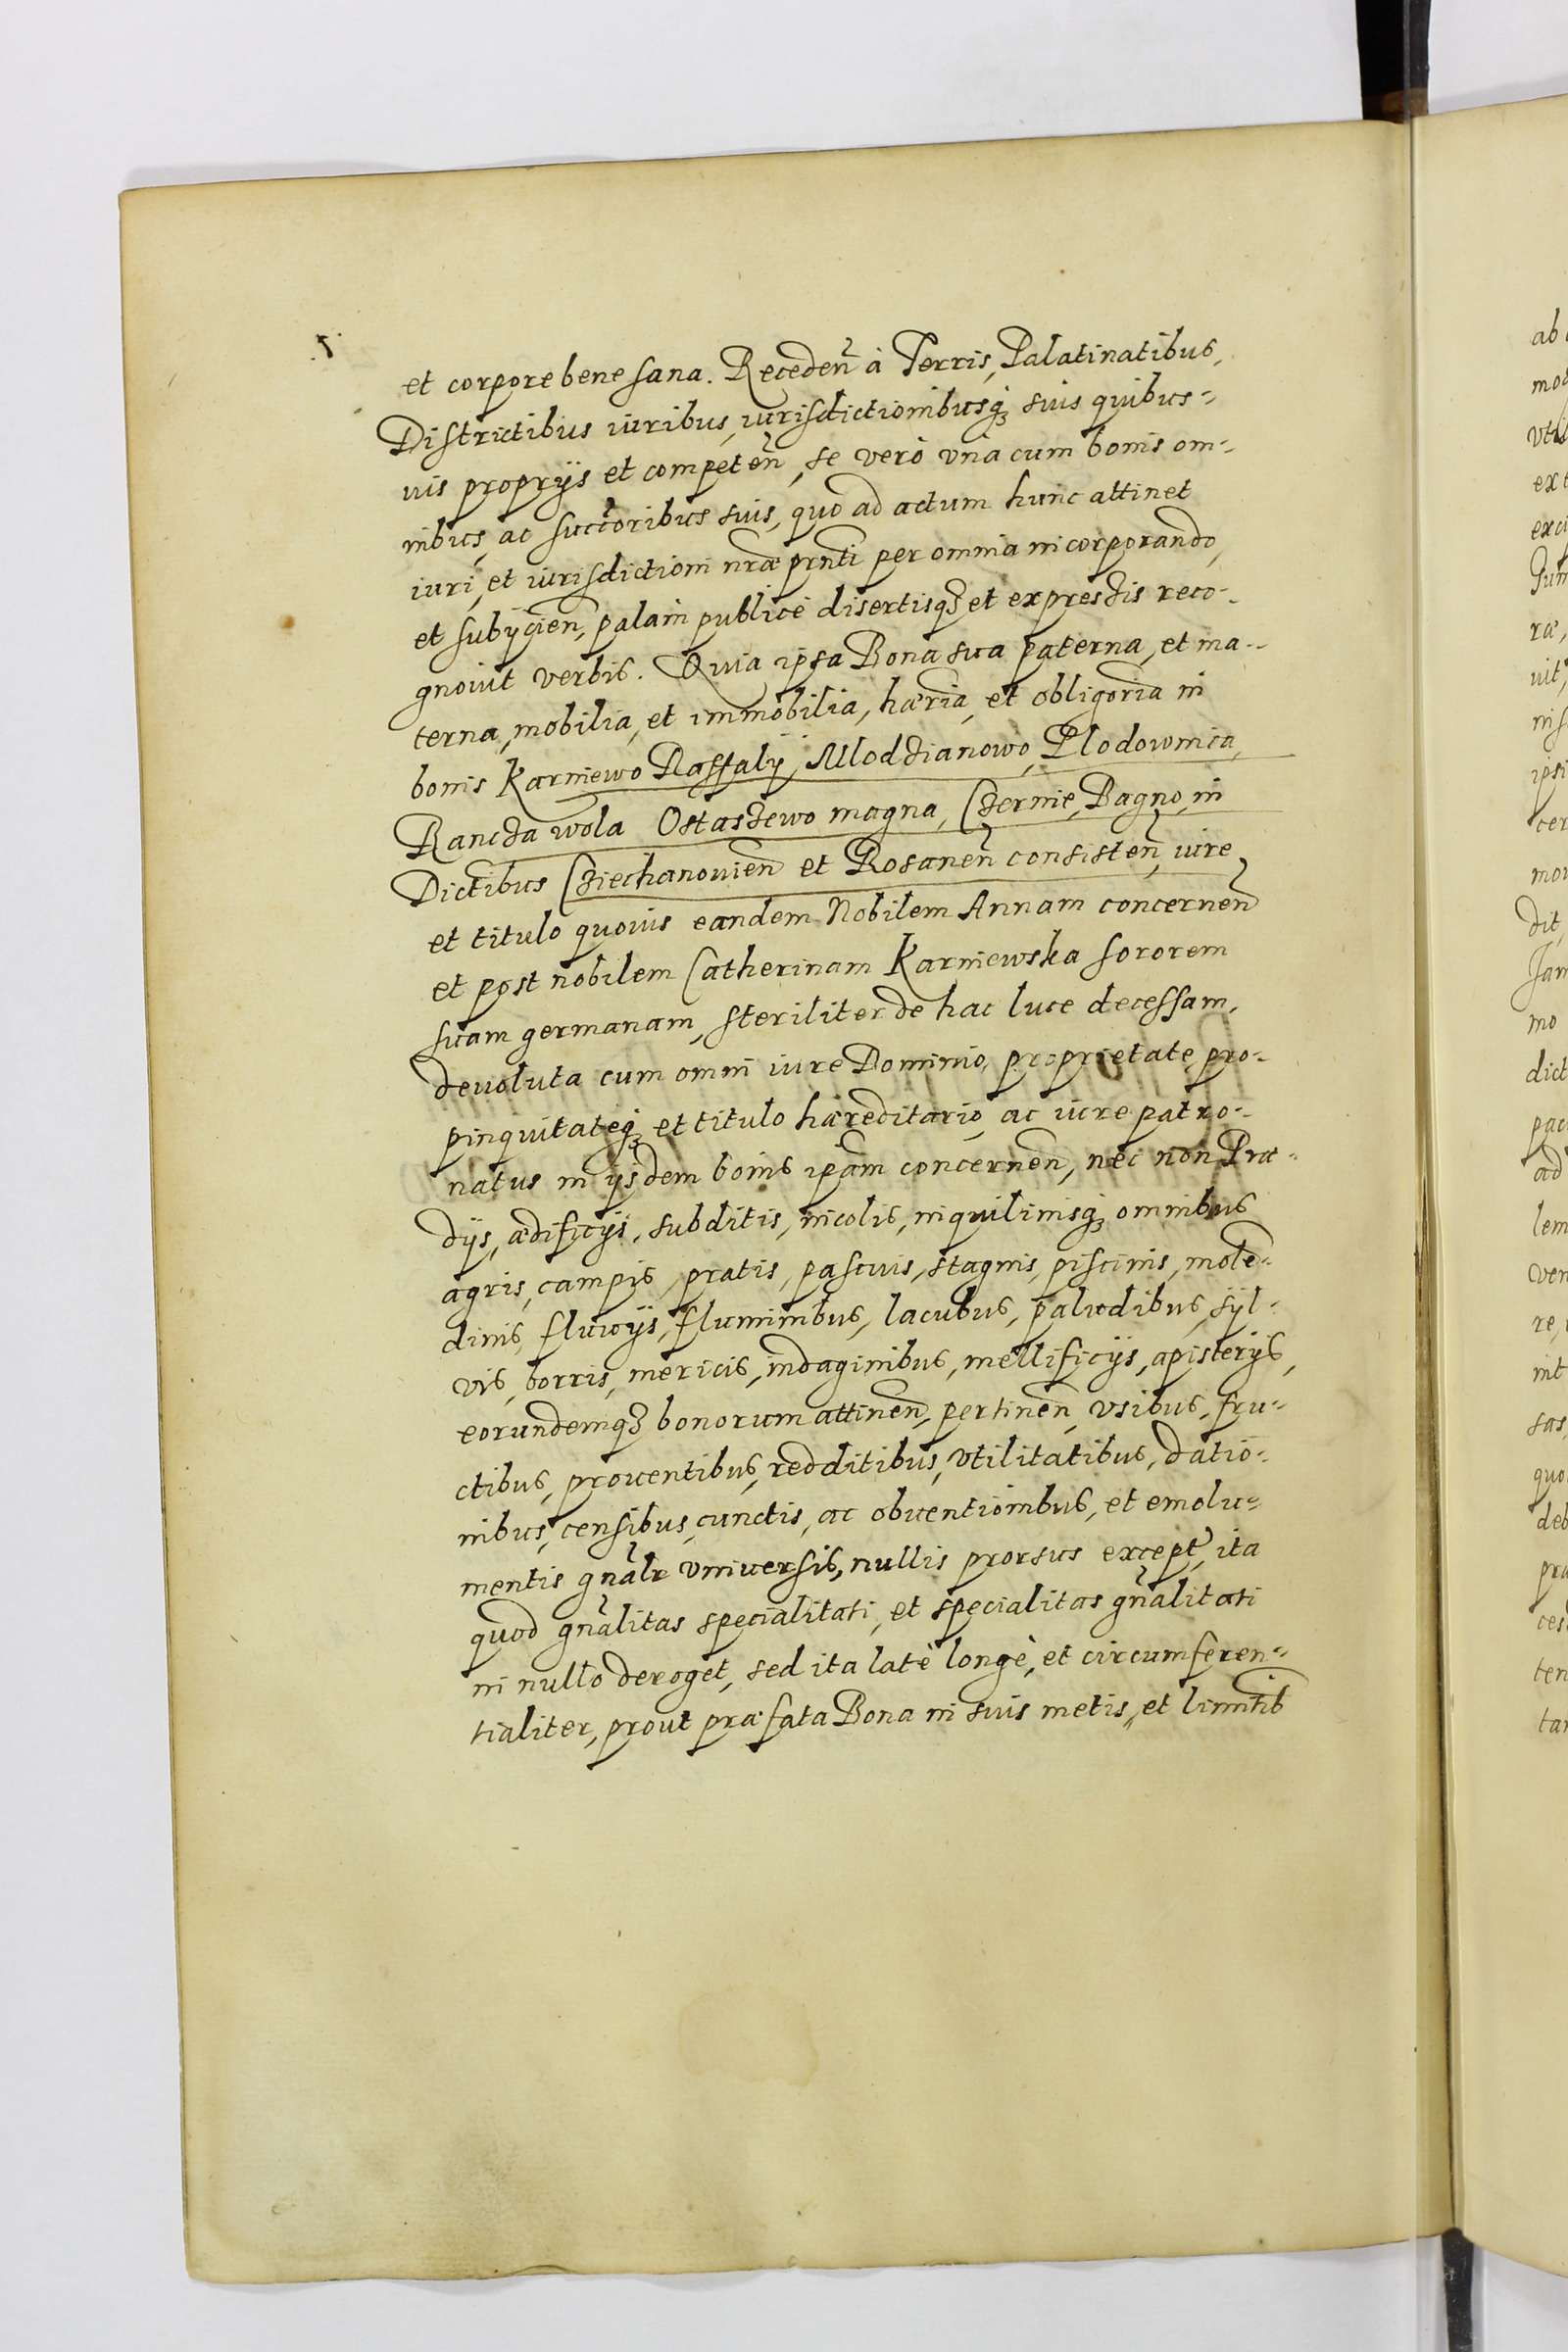 et corpore bene sana. Receden̄ à Terris, Palatinatibus,
Districtibus iuribus, iurisdictionibusq; suis quibus=
uis proprijs et competen̄, se verò vnà cum bonis om=
nibus, ac succ̄oribus suis, quo ad actum hunc attinet
iuri, et iurisdictioni nr̄æ prn̄ti per omnia incorporando,
et subijcien̄, palam publicè disertisq; et expressis reco=
gnouit verbis. Quia ipsa Bona sua paterna, et ma=
terna, mobilia, et immobilia, hær̄ia, et obligor̄ia in
bonis Karniewo Rassaly, Mlodzianowo, Plodownica,
Rancza wola Ostaszewo magna, Czernie, Bagno, in
Dictibus Cziechanouien̄ et Rosanen̄ consisten̄, iure
et titulo quouis eandem Nobilem Annam concernen̄
et post nobilem Catherinam Karniewska sororem
suam germanam, steriliter de hac luce decessam,
deuoluta cum omni iure Dominio, proprietate, pro=
pinquitateq; et titulo hæreditario, ac iure patro=
natus in ijsdem bonis ipām concernen̄, nec non Præ=
dijs, ædificijs, subditis, incolis, inquilinisq; omnibus
agris, campis, pratis, pascuis, stagnis, piscinis, molē=
dinis, fluuijs, fluminibus, lacubus, paludibus, syl=
vis, borris, mericis, indaginibus, mellificijs, apisterijs,
eorundemq; bonorum attinen̄, pertinen̄, vsibus, fru=
ctibus, prouentibus, redditibus, vtilitatibus, datio=
nibus, censibus, cunctis, ac obuentionibus, et emolu=
mentis gn̄alr vniuersis, nullis prorsus except̄, ita
quod gn̄alitas specialitati, et specialitas gn̄alitati
in nullo deroget, sed ita latè longè, et circumferen=
tialiter, prout præfata Bona in suis metis, et limitib